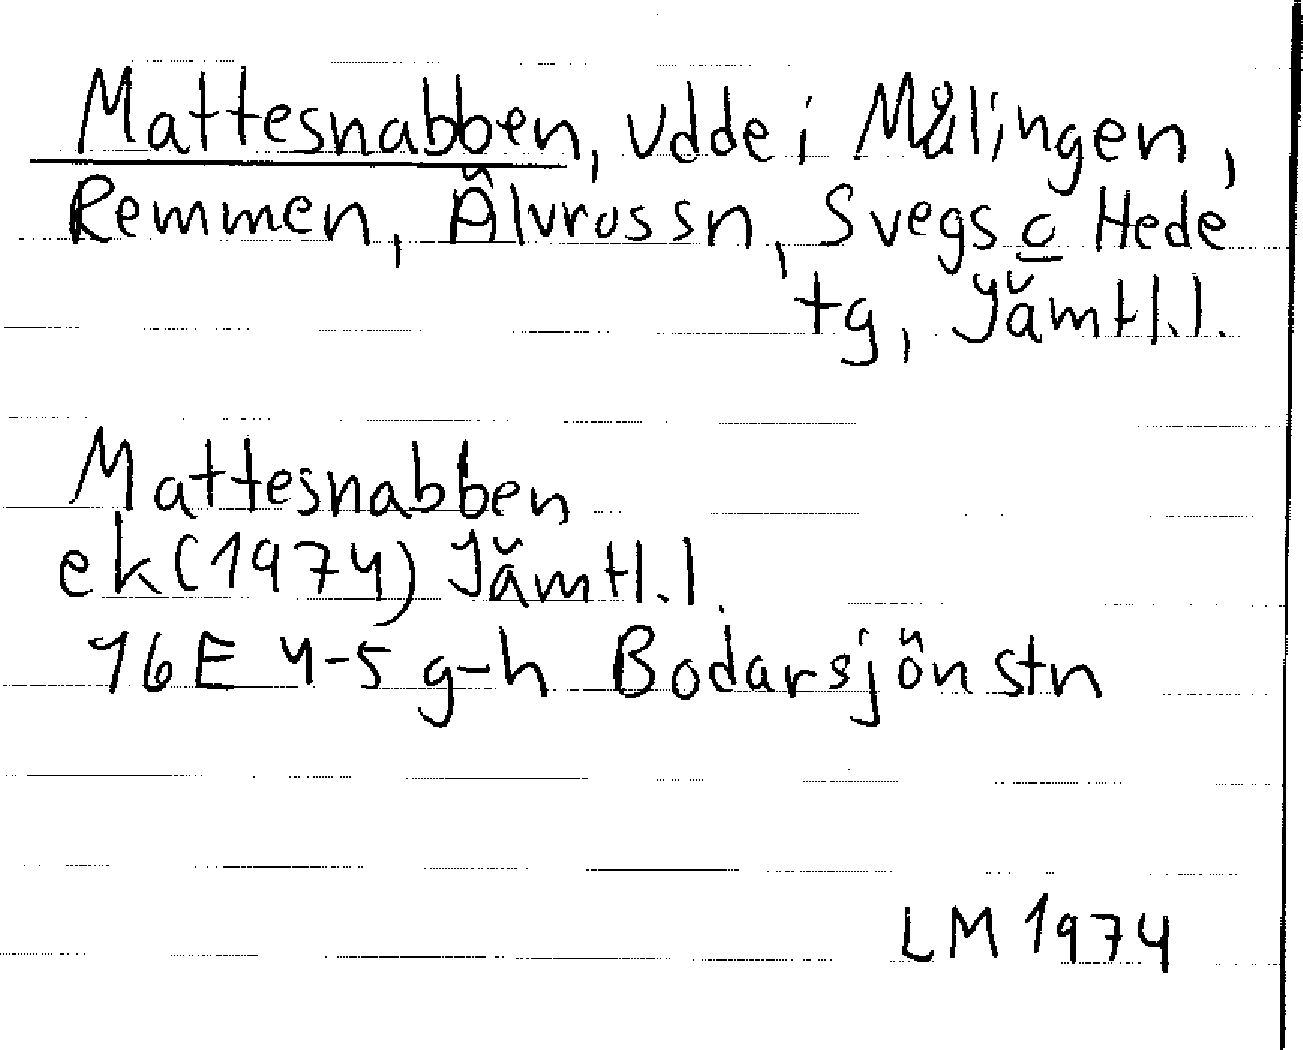 Mattesnabben, udde i Målingen,
Remmen, Älvrossn, Svegs o Hede
tg, Jämtl.l.
Mattesnabben
ek (1974) Jämtl.l.
16E 4-5 g-h Bodarsjön stn
LM 1974